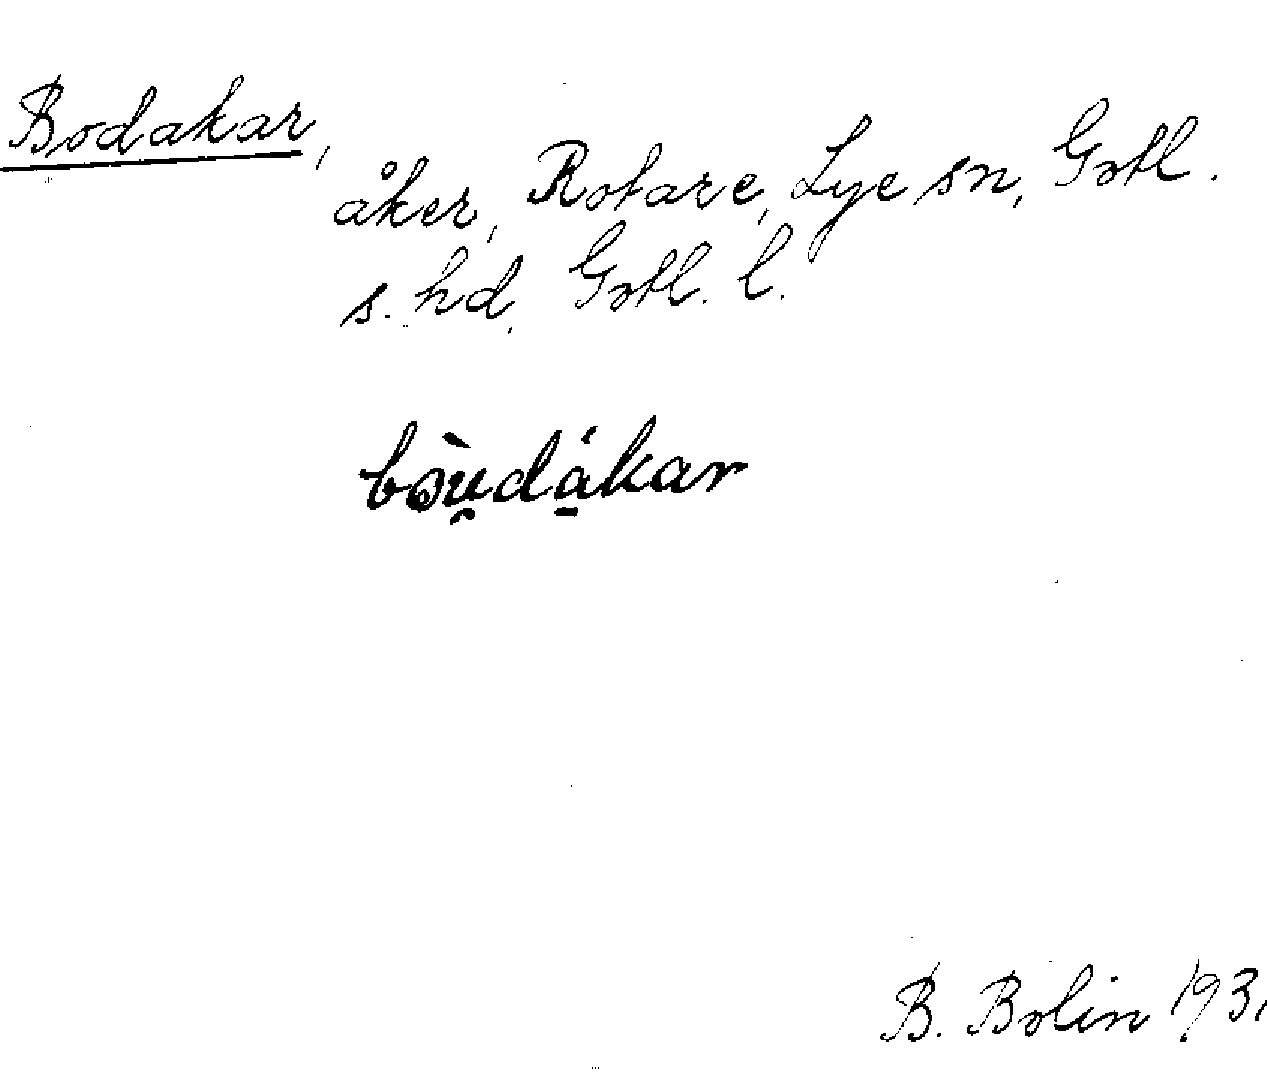 Bodakar,
åker, Rotare, Lye sn, Gotl.
s. hd, Gotl. l.
bòu̯dá̠kar
B. Bolin 193